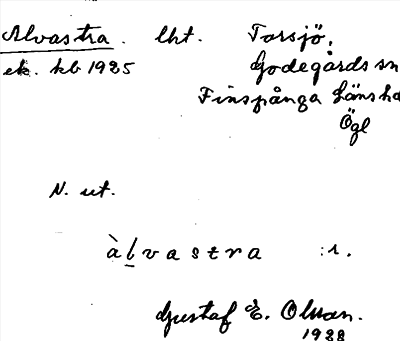 Alvastra. lht. Torsjö,
ek. kb 1925 Godegårds sn
Finspånga länshd
Ögl
N. ut.
àlvastra :r.
Gustaf E. Olsson.
1928